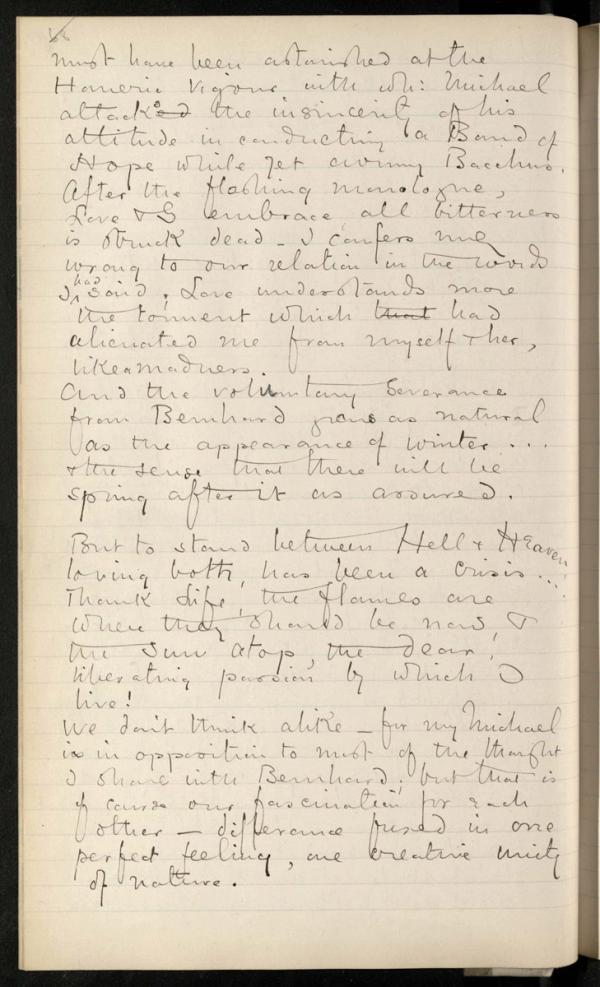 66
must have been astonished at the
Homeric vigour with wh: Michael
attacked the insincerity of his
attitude in conducting a Band of
Hope while yet owning Bacchus.
After the flashing monologue,
Love & I embrace, all bitterness
is struck dead – I confess my
wrong to our relation in the words
I had said; Love understands more
the torment which that had
alienated me from myself & her,
like a madness.
And the voluntary severance
from Bernhard grows as natural
as the appearance of winter ...
& the sense that there will be
spring after it as assured.
But to stand between Hell & Heaven
loving both, has been a crisis ...
Thank Life, the flames are
where they should be now &
the sun atop, the dear,
liberating passion by which I
live!
We don't think alike – for my Michael
is in opposition to most of the thought
I share with Bernhard; but that is
of course our fascination for each
other – difference fused in one
perfect feeling, one creative unity
of nature.